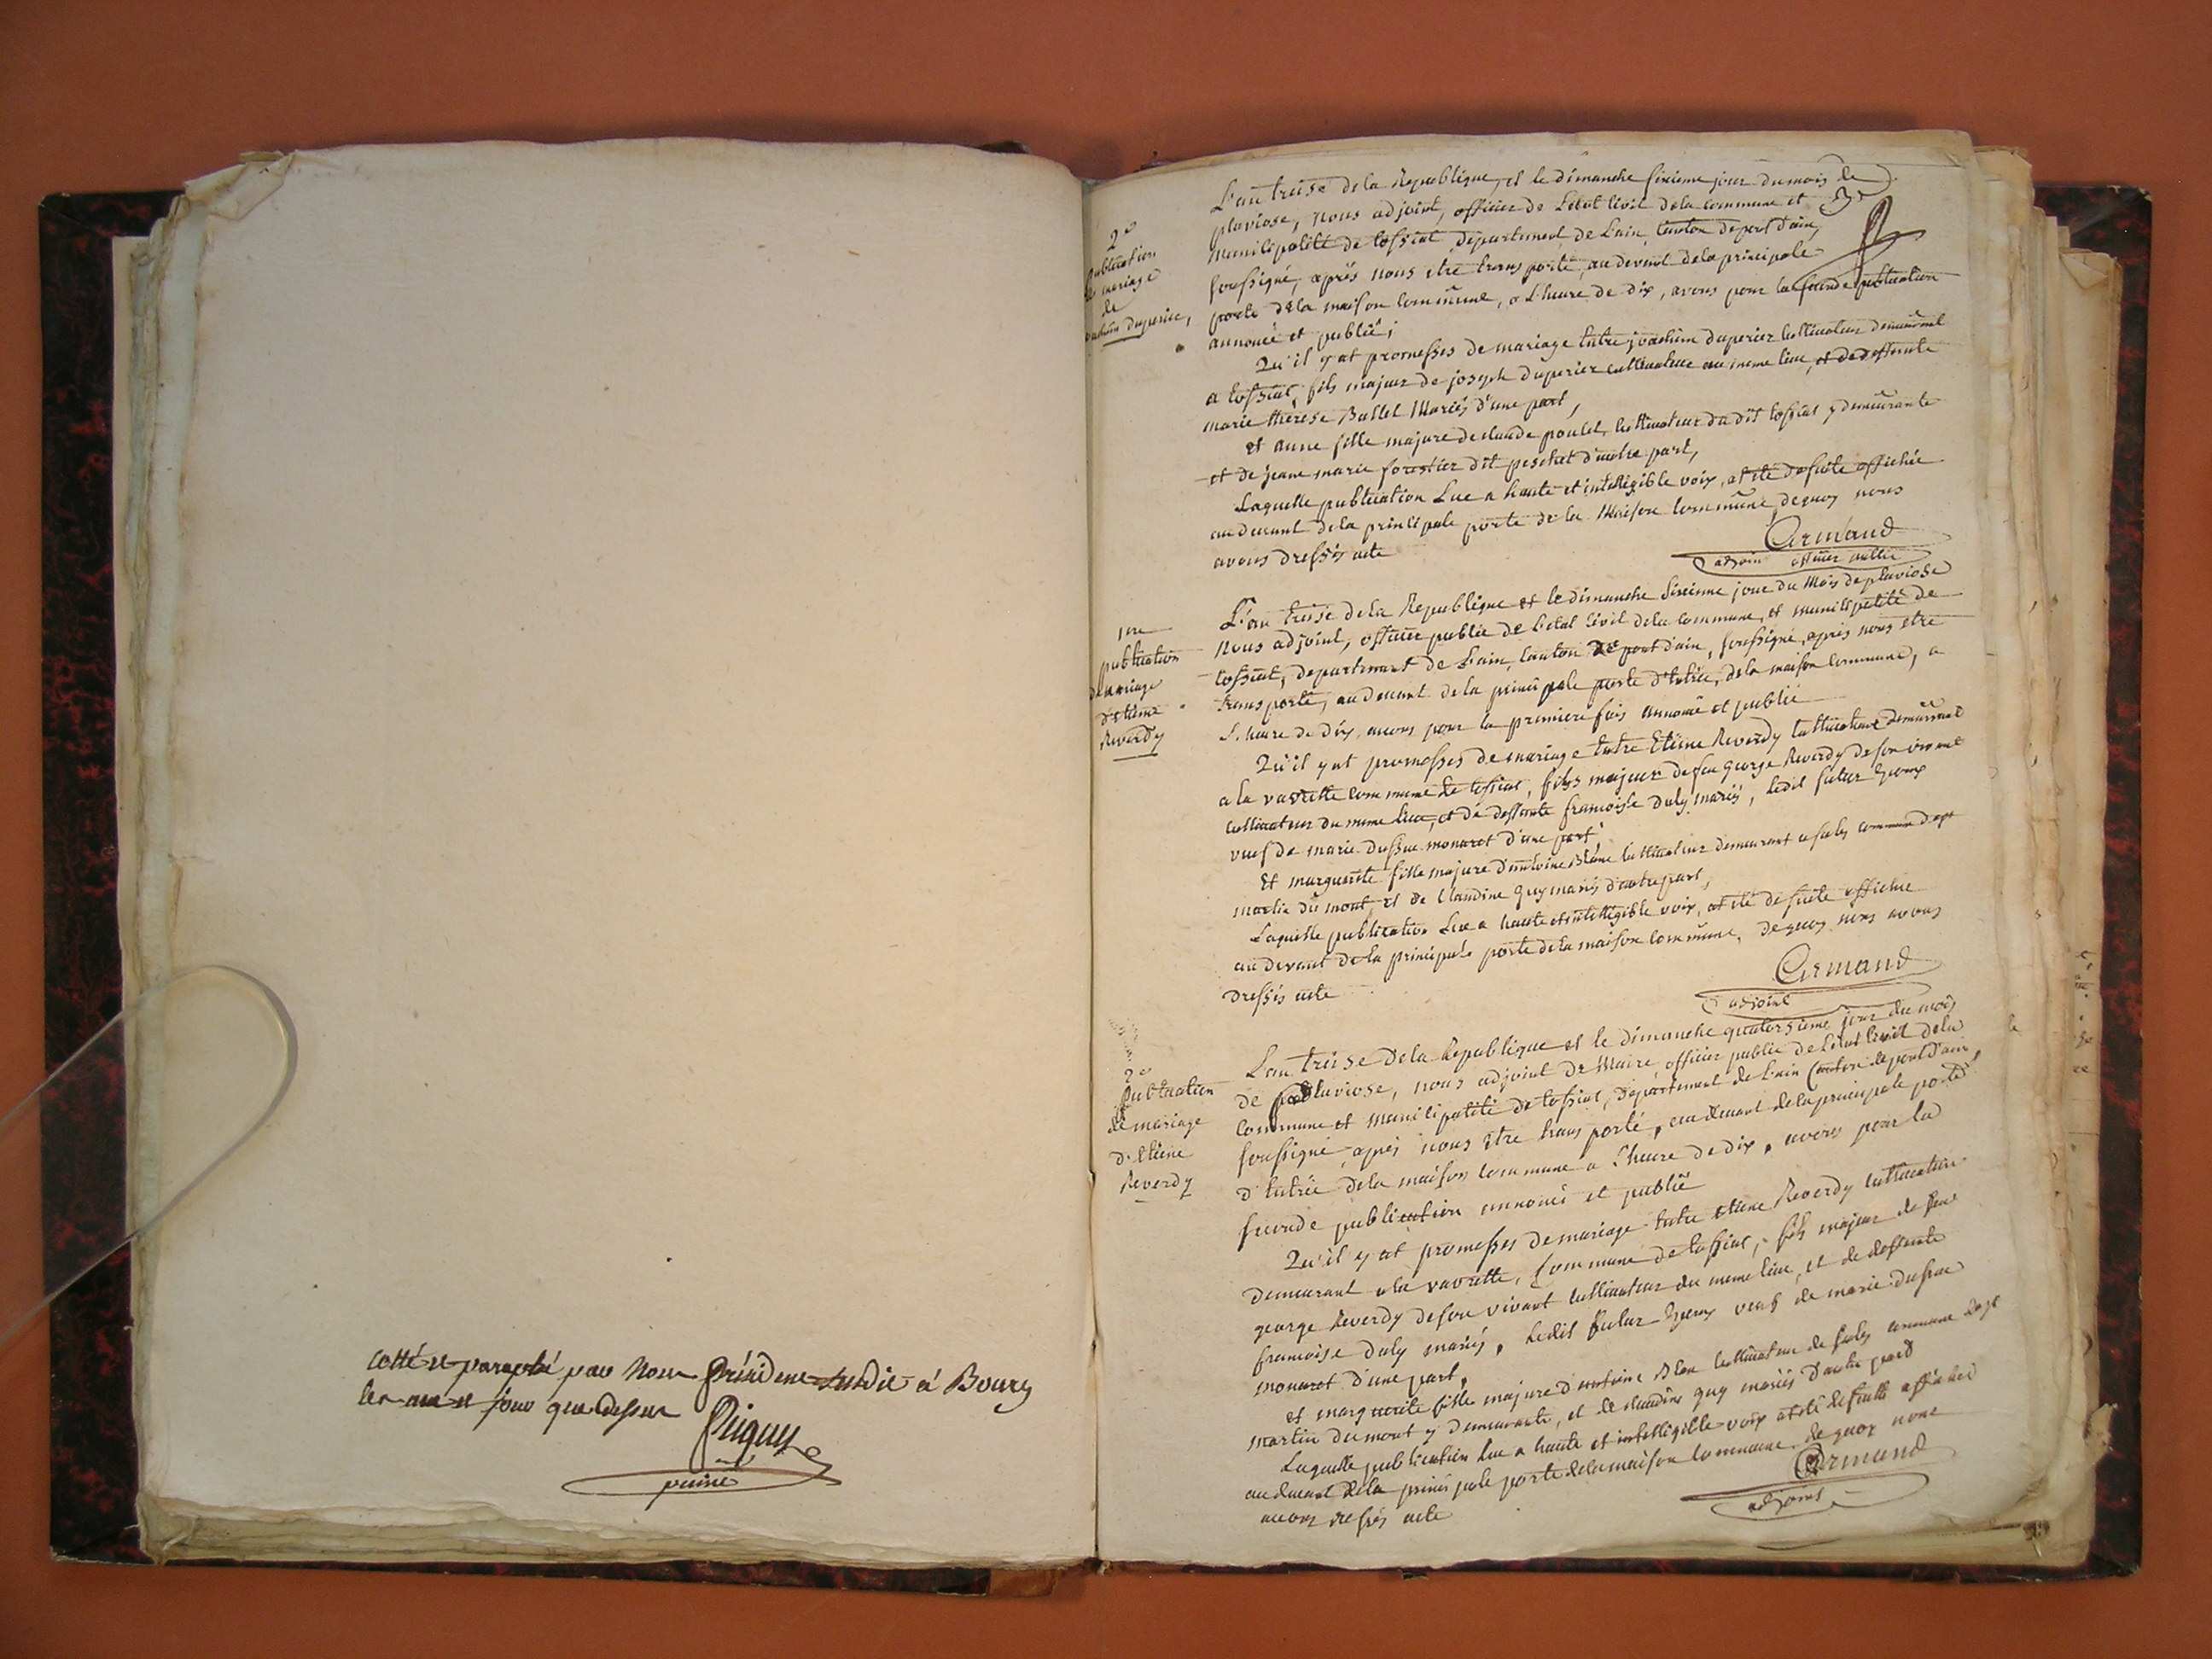 cotté et paraphé par Nous Président susdit à Bourg
les an et jour que dessus
Piquet
puiné
2e
publication
de mariage
de
joachim duperier,
L'an treise de la Republique, et le dimanche sixieme jour du mois de
pluviose, nous adjoint, officier de L'état Civil de la commune et
Municipalité de tossiat département de L'ain, Canton de pont d'ain,
soussigné, après nous etre transporté, au devent de la principale
porte de la maison Commune, a L'heure de dix, avons pour la seconde publication
annoncé et publié;
Qu'il y at promesses de mariage Entre joachim duperier Cultivateur demeurant
a tossiat, fils majeur de joseph duperier cultivateur au meme lieu, et de deffunte
marie therese Ballet Mariés d'une part,
et anne fille majure de claude poulet, Cultivateur du dit tossiat y demeurante
et de jeane marie forestier dit peschet d'autre part,
Laquelle publication Lue a haute et intelligible voix, at été de suite affichée
au devant de la principale porte de la Maison Commune, de quoy nous
avons dressés acte
Armand
adjoin officier public
1re
publication
de mariage
d'etiene
Reverdy
L'an treise de la Republique et le dimanche sixieme jour du Mois de pluviose
Nous adjoint, officier public de L'état Civil de la commune, et municipalité de
tossiat, departement de L'ain, Canton de pont d'ain, soussigné, après nous etre
transporté, au devant de la principale porte d'Entrée, de la maison Commune, a
L'heure de dix, avons pour la premiere fois annoncé et publié
Qu'il y at promesses de mariage Entre Etiene Reverdy Cultivateur demeurant
a la vavrette commune de tossiat, fils majeur de feu george Reverdy de son vivant
Cultivateur du meme lieu, et de deffunte francoise duly mariés, Ledit futur Epoux
veuf de marie monaret d'une part
Et marguerite fille majure d'antoine Blanc Cultivateur demeurant a soley commune de st
martin du mont, et de Claudine guy mariés d'autre part,
Laquelle publication Lue a haute et intelligible voix, at été de suite affichée
au devant de la principale porte de la maison Commune, de quoy nous avons
dressés acte
Armand
adjoint
2e
Publication
de mariage
d'Etiene
Reverdy
L'an treise de la Republique et le dimanche quatorsieme jour du mois
de pluviose, nous adjoint de Maire, officier public de L'état Civil de la
Commune et Municipalité de tossiat, département de L'ain Canton de pont d'ain,
soussigné, après nous Etre transporté, au devant de la principale porte
d'Entrée de la maison Commune a L'heure de dix, avons pour la
seconde publication annoncé et publié
Qu'il y at promesses de mariage Entre Etiene Reverdy Cultivateur
demeurant a la vavrette, Commune de tossiat, fils majeur de feu
george Reverdy de son vivant Cultivateur du meme lieu, et de deffunte
francoise duly mariés, Ledit futur Epoux veuf de marie
monaret d'une part,
et marguerite fille majure d'antoine Blanc Cultivateur de soley commune de st
martin du mont y demeurante, et de claudine guy mariés d'autre part
Laquelle publication Lue a haute et intelligible voix at été de suitte affichée
au devant de la principale porte de la maison Commune de quoy nous
avons dressés acte
Armand
adjoint